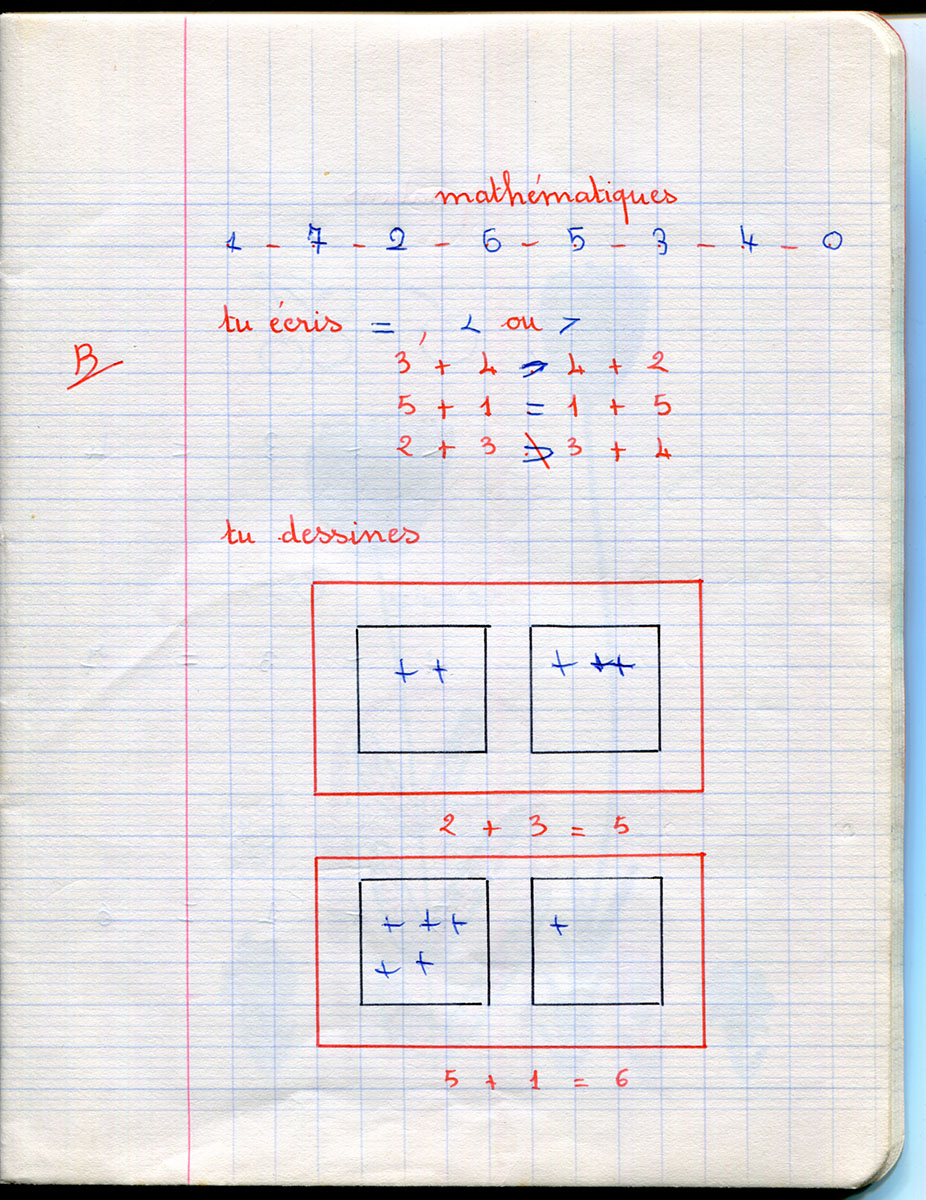 mathématiques
1 - 7 - 2 - 6 - 5 - 3 - 4 - 0
tu écris = , < ou >
B
3 + 4 > 4 + 2
5 + 1 = 1 + 5
2 + 3 > 3 + 4
tu dessines
+ + + + +
2 + 3 = 5
+ + + +
+ +
5 + 1 = 6